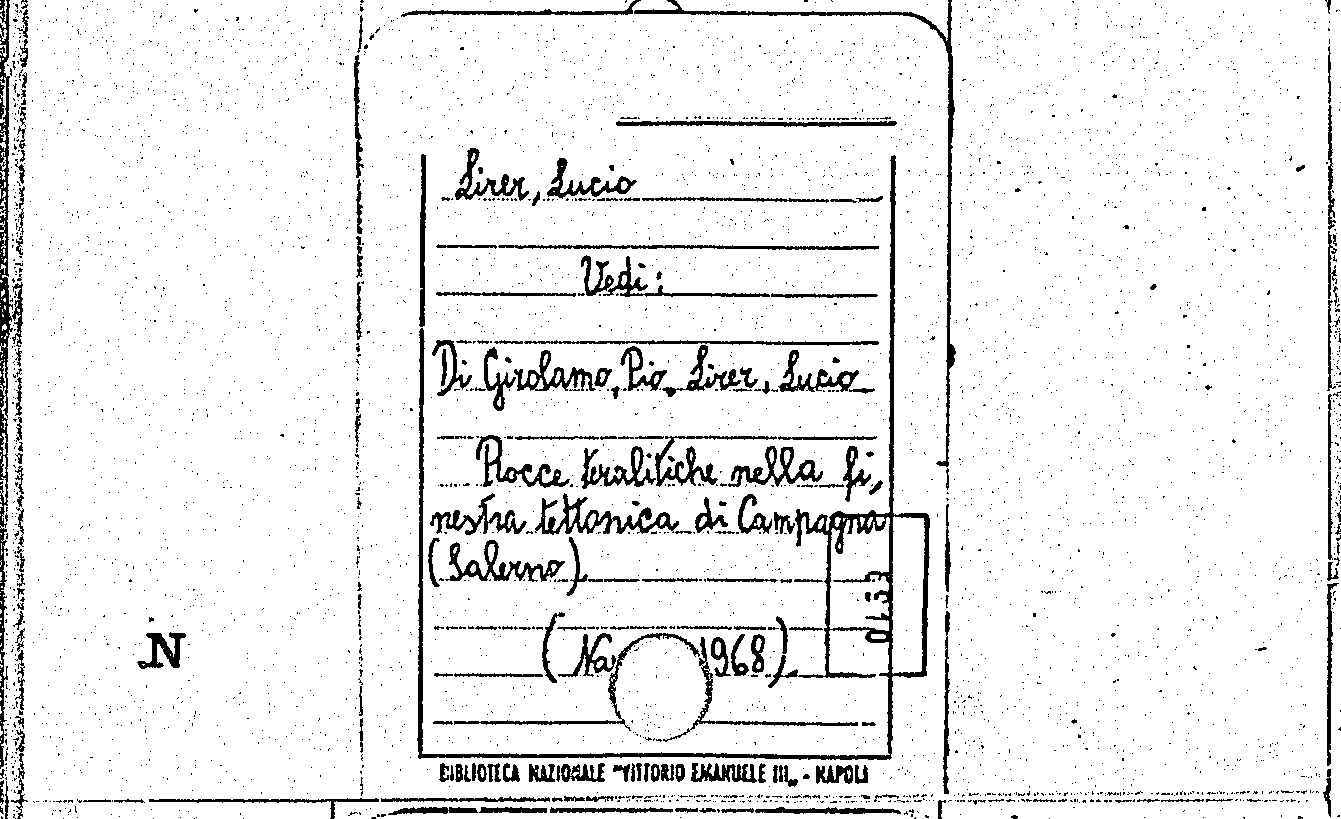 Lirer, Lucio
Vedi:
Di Girolamo, Pio, Lirer, Lucio
Rocce teralitiche nella fi,
nestra tettonica di Campagna
(Salerno).
(Na 1968).
0133
N
BIBLIOTECA NAZIONALE "VITTORIO EMANUELE III„ - NAPOLI